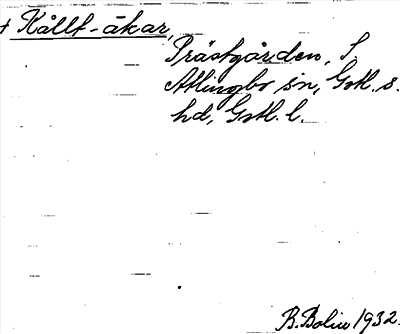 + Kållt-åkar,
Prästgården, S
Atlingbo sn, Gotl. s.
hd, Gotl. l.
B. Bolin 1932.